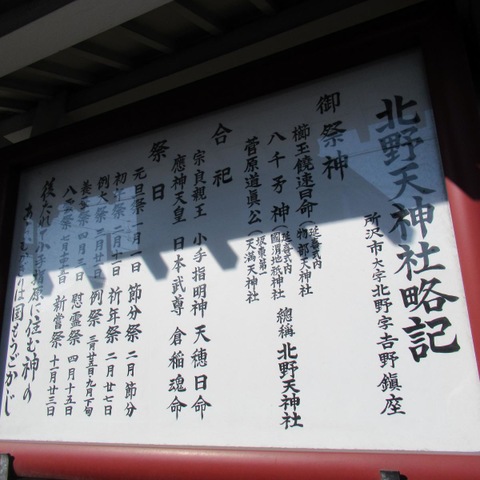 北野天神社略記
所沢市大字北野字吉野鎮座
御祭神
櫛玉饒速日命 (延喜式内物部天神社
八千矛神 (延喜式内國渭地祇神社
菅原道眞公 (坂東第一天満天神社
総稱 北野天神社
合祀
宗良親王 小手指明神 天穂日命
應神天皇 日本武尊 倉稲魂命
祭日
元旦祭 一月一日 節分祭 二月節分
祈年祭 二月廿七日
例大祭 二月廿五日 例祭
慰霊祭 四月十五日
新嘗祭 十一月廿三日
小手指原に住む神の